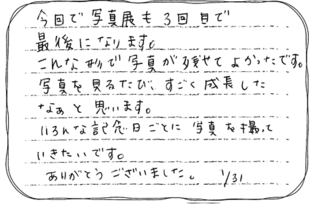 今回で写真展も3回目で
最後になります。
こんな形で写真が残せてよかったです。
写真を見るたび、すごく成長した
なぁと思います。
いろんな記念日ごとに写真を撮って
いきたいです。
ありがとうございました。 1/31